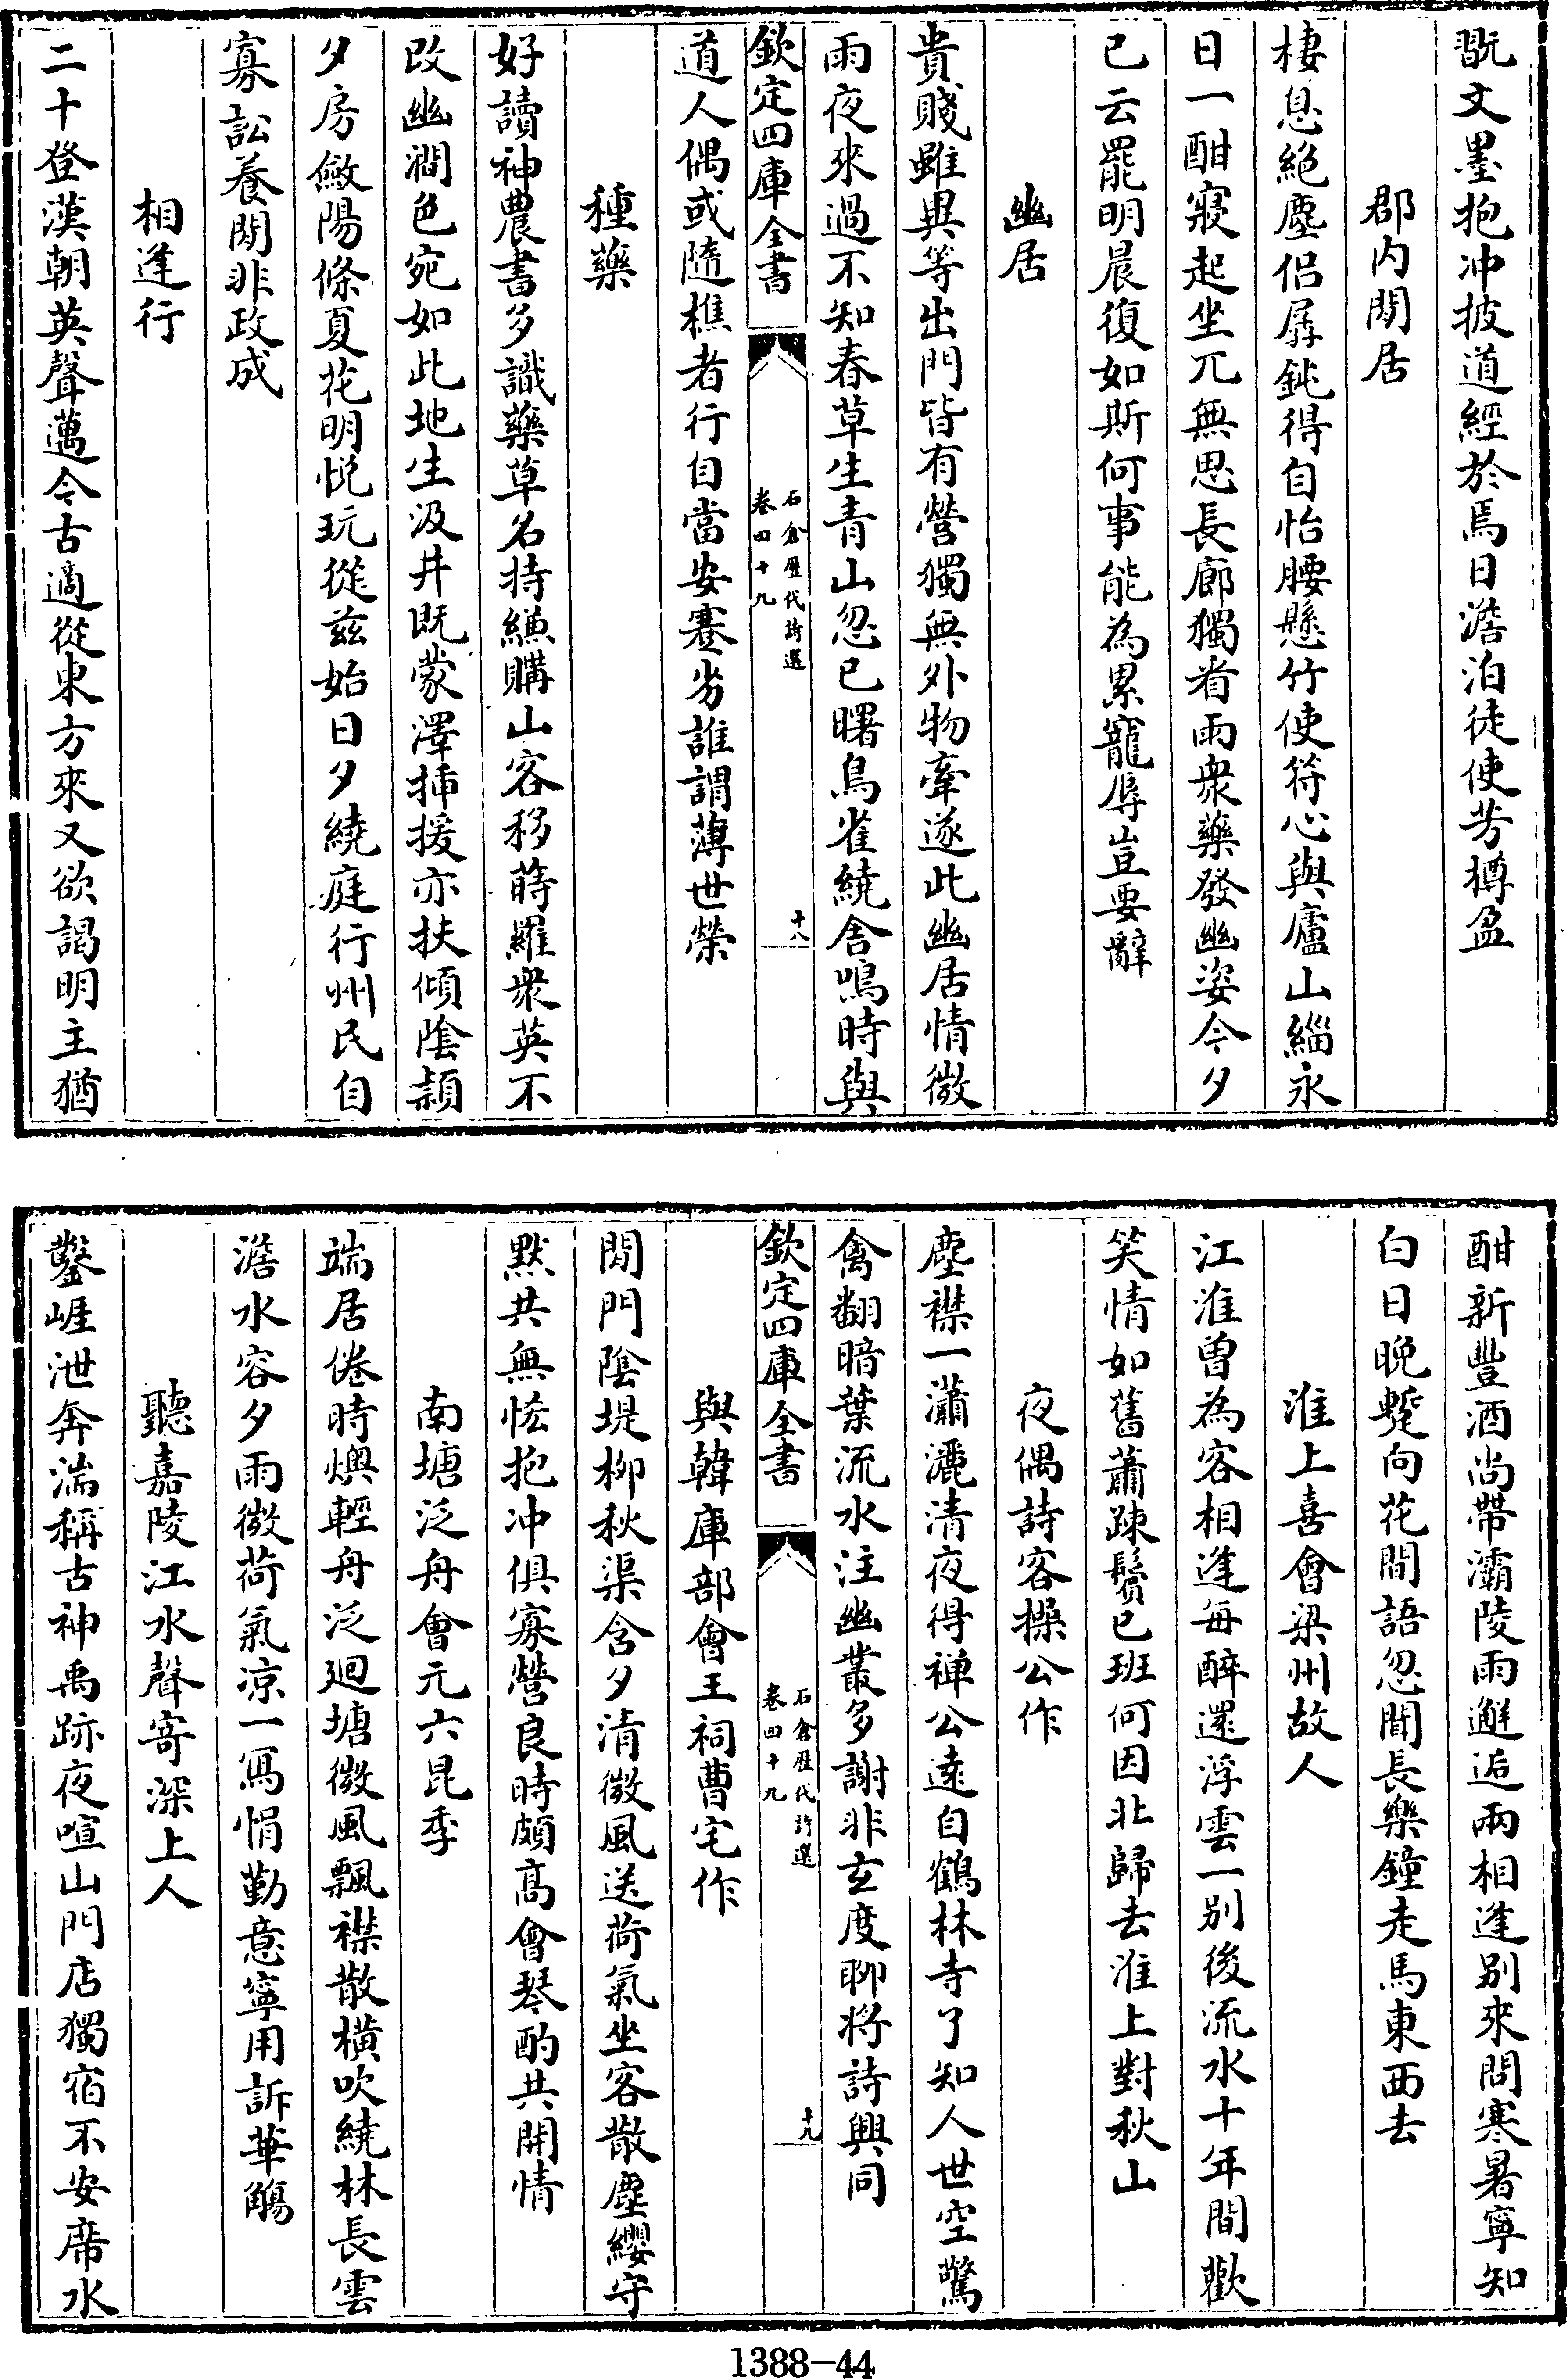 翫文墨抱冲披道經於焉日澹泊徒使芳樽盈
郡内閒居
棲息絶塵侣孱鈍得自怡腰懸竹使符心與廬山緇永
日一酣寢起坐兀無思長廊獨看雨衆藥發幽姿今夕
已云罷明晨復如斯何事能為累寵辱豈要辭
幽居
貴賤雖異等出門皆有營獨無外物牽遂此幽居情微
雨夜來過不知春草生青山忽已曙鳥雀繞舍鳴時與
欽定四庫全書
石倉歷代詩選
卷四十九
十八
道人偶或隨樵者行自當安蹇劣誰謂薄世榮
種藥
好讀神農書多識藥草名持縑購山客移蒔羅衆英不
改幽澗色宛如此地生汲井既蒙澤插援亦扶傾陰潁
夕房斂陽條夏花明悦玩從兹始日夕繞庭行州民自
寡訟養閒非政成
相逢行
二十登漢朝英聲邁今古適從東方來又欲謁明主猶
酣新豐酒尚帶灞陵雨邂逅兩相逢别來問寒暑寧知
白日晚蹔向花間語忽聞長樂鐘走馬東西去
淮上喜會梁州故人
江淮曽為客相逢每醉還浮雲一别後流水十年間歡
笑情如舊蕭疎鬢已班何因北歸去淮上對秋山
夜偶詩客操公作
塵襟一瀟灑清夜得禅公遠自鶴林寺了知人世空驚
禽翻暗葉流水注幽叢多謝非玄度聊將詩興同
欽定四庫全書
石倉歷代詩選
卷四十九
十九
與韓庫部會王祠曹宅作
閒門陰堤柳秋渠含夕清微風送荷氣坐客散塵纓守
默共無怪抱冲俱寡營良時頗高會琴酌共開情
南塘泛舟會元六昆季
端居倦時燠輕舟泛廻塘微風飄襟散横吹繞林長雲
澹水容夕雨微荷氣凉一寫悁勤意寧用訴華觴
聽嘉陵江水聲寄深上人
鑿崕泄奔湍稱古神禹跡夜喧山門店獨宿不安席水
1388-44